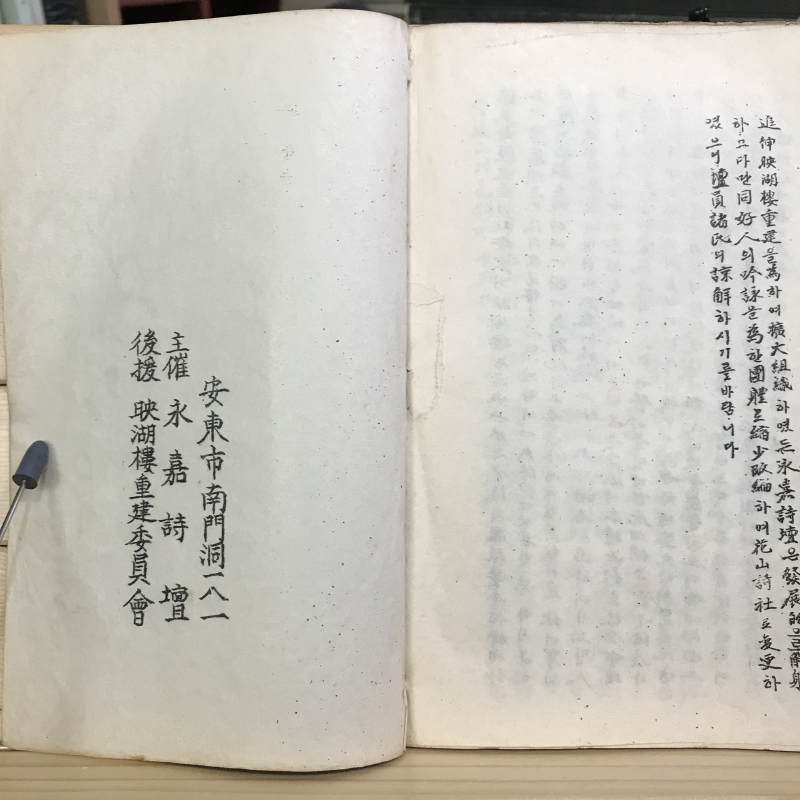 追伸映湖樓重建을爲하여擴大組織하였든永嘉詩壇은發展的으로解
하고다만同好人의吟詠을爲한團體로縮少改編하여花山詩社로変更하
였으니壇員諸氏의諒解하시기를바랍니다
安東市南門洞一八一
主催 永嘉詩壇
後援 映湖樓重建委員會